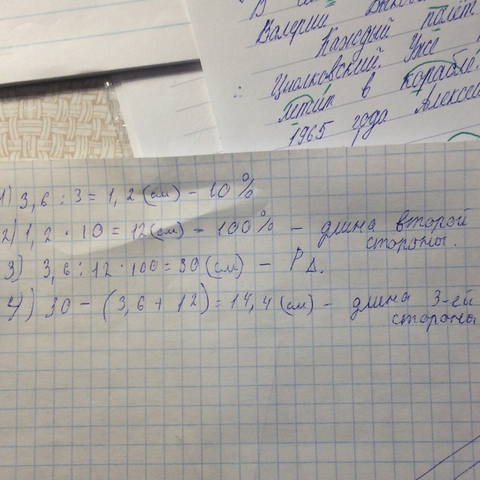 Валерий
Каждый полёт
Циолковский. Уже
летит в корабле
1965 года Алексей
1) 3,6 : 3 = 1,2 (см) – 10%
2) 1,2 · 10 = 12 (см) – 100% – длина второй
стороны.
3) 3,6 : 12 · 100 = 30 (см) – P Δ.
4) 30 – (3,6 + 12) = 14,4 (см) – длина 3-ей
стороны